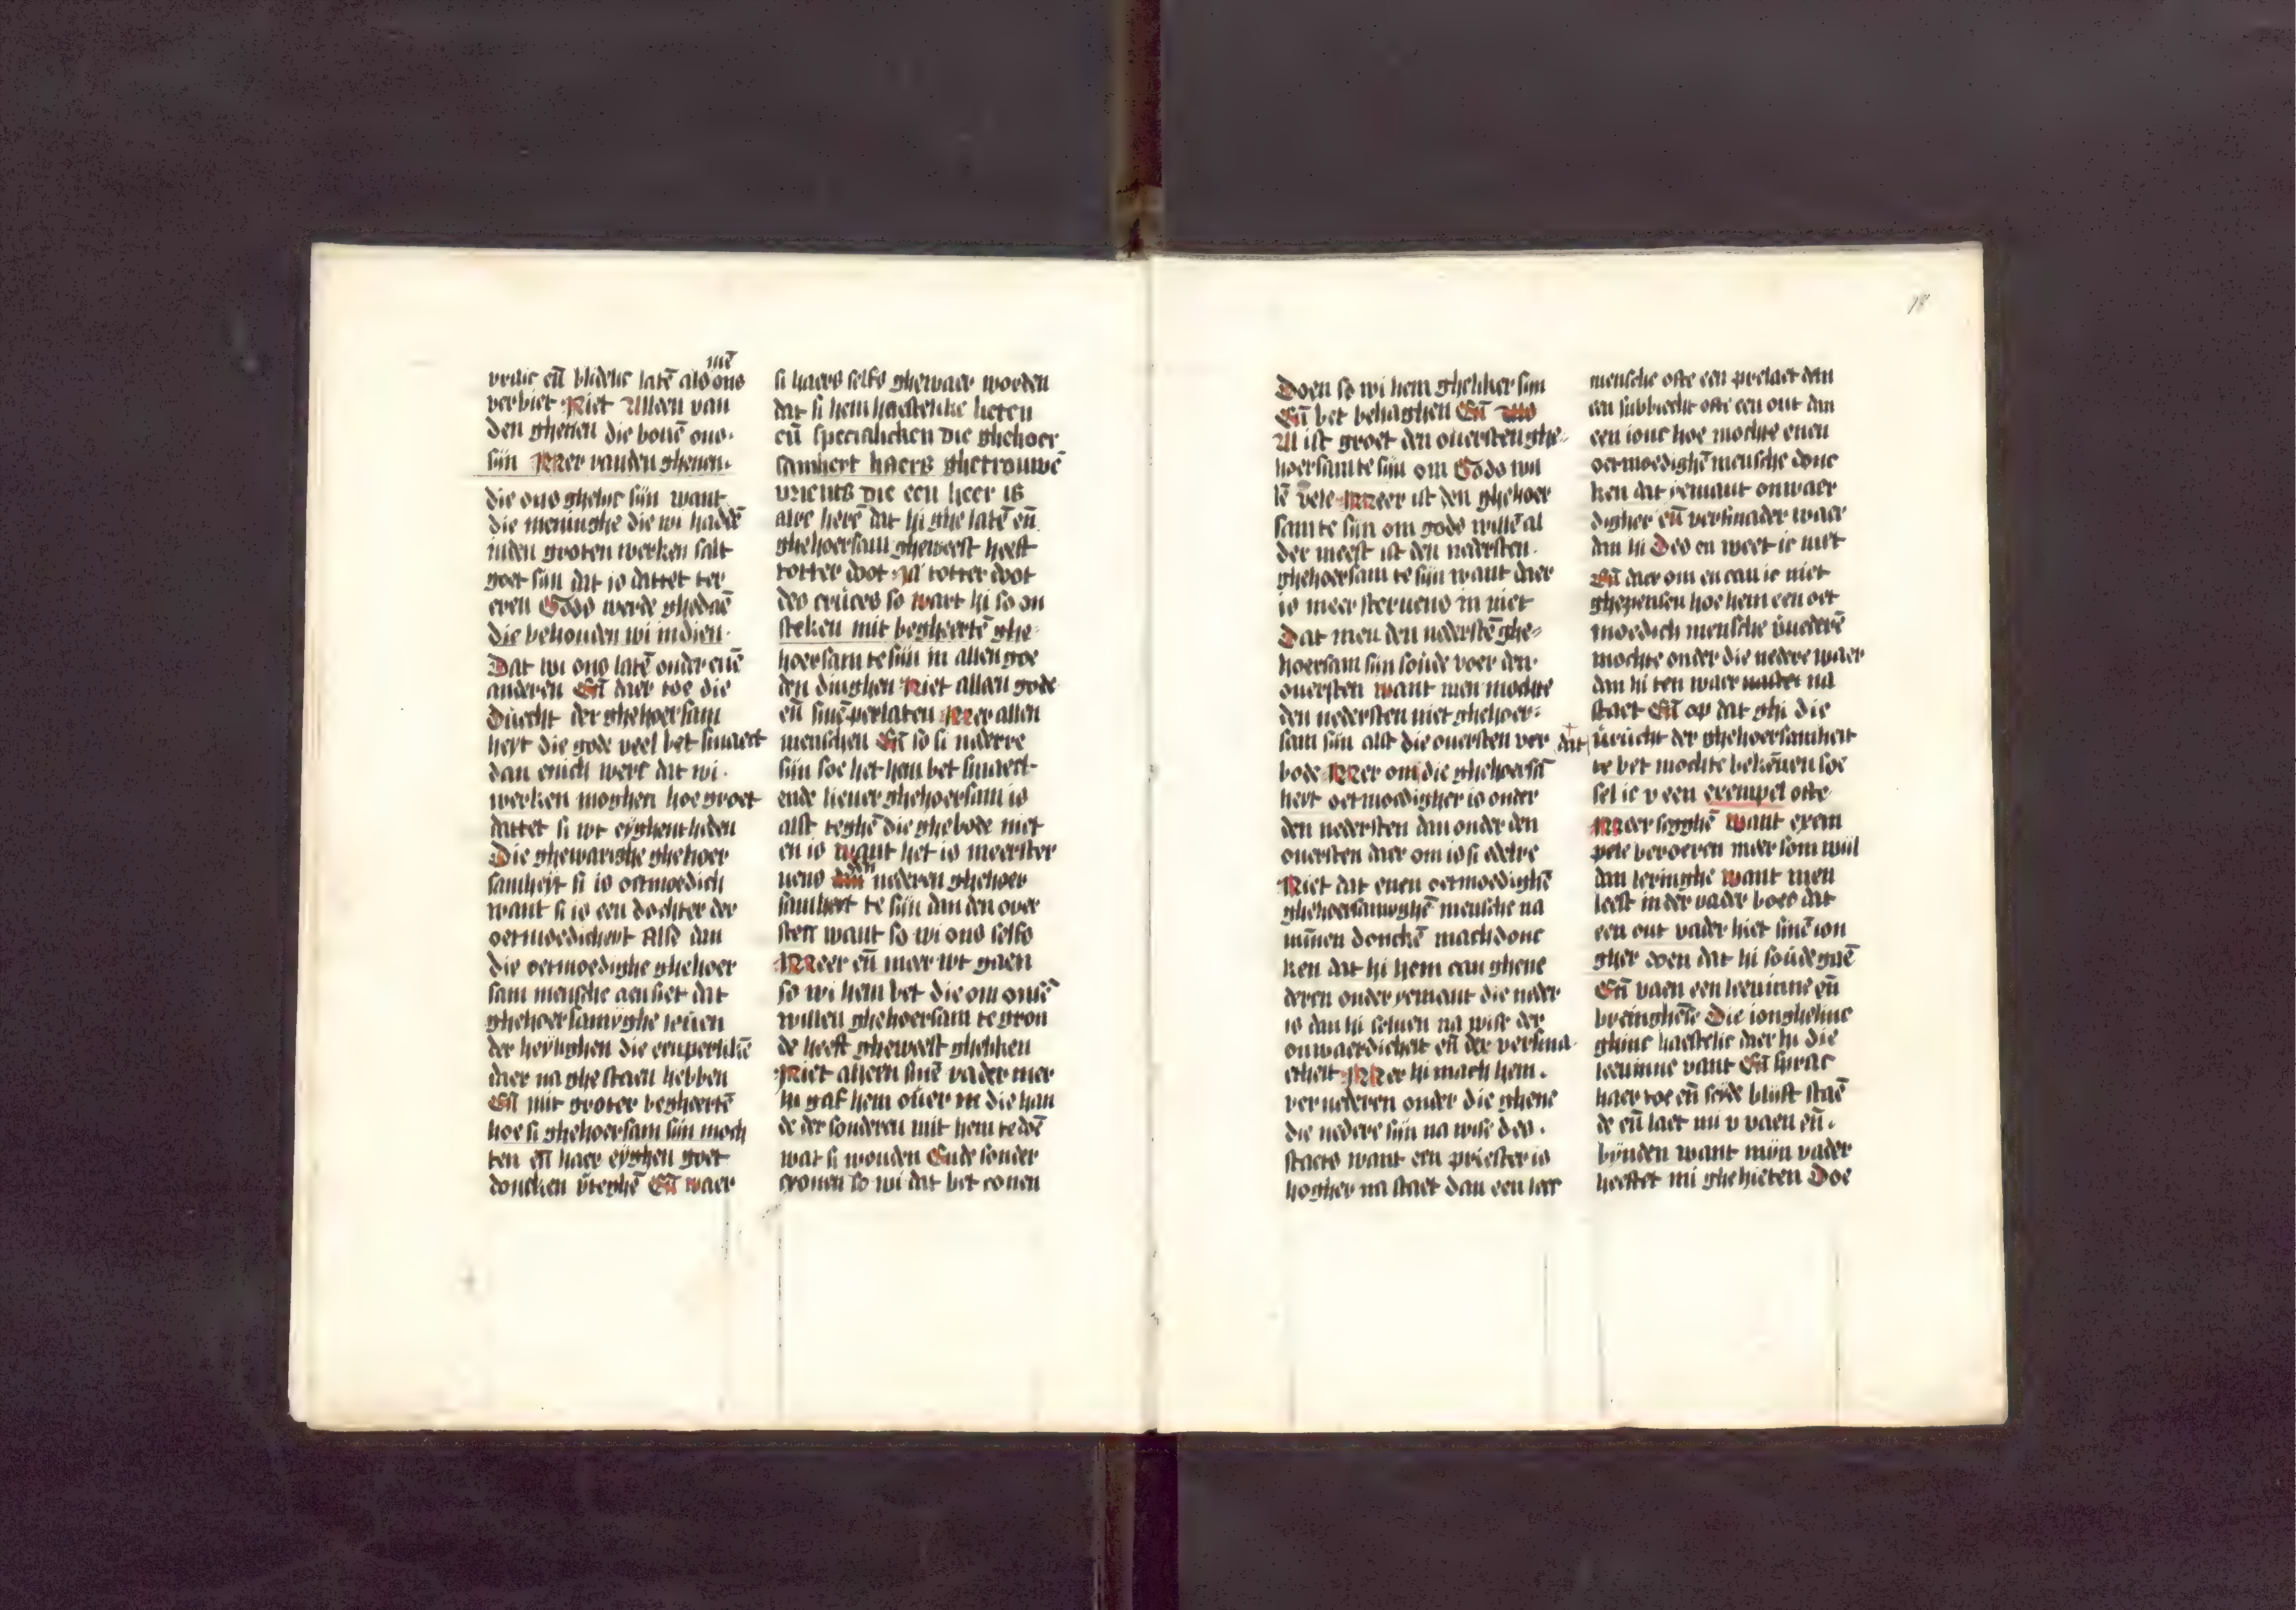 vrilic eñ blidelic latē als ons
mē
verbiet Niet Alleen van
den ghenen die bouē ons.
sijn Mer vanden ghenen.
die ons ghelijc sijn want
die meninghe die wi haddē
inden groten werken salt
goet sijn dat is dattet ter
eren Gods werde ghedaē
die behouden wi in dien.
Dat wi ons latē onder enē
anderen Eñ daer toe die
duecht der ghehoersam
heyt die gode veel bet smaect
dan enich werc dat wi.
werken moghen hoe groet
dattet si wt eyghentheden
Die ghewarighe ghehoer
samheyt si is oetmoedich
want si is een dochter der
oetmoedicheyt Alse dan
die oetmoedighe ghehoer
sam mensche aensiet dat
ghehoersamyghe leuen
der heylighen die eenperlikē
daer na ghestaen hebben
Eñ mit groter begheertē
hoe si ghehoersam sijn moch
ten eñ haer eyghen goet
doncken v̄teghē Eñ waer
si haers selfs ghewaer worden
dat si hem haestelike lieten
eñ specialicken die ghehoer
samheit haers ghetrouwē
vrients die een heer is
alre herē dat hi ghelatē eñ
ghehoersam gheweest heeft
totter doot Ja totter doot
des cruces so wart hi so on
steken mit begheertē ghe
hoersam te sijn in allen goe
den dinghen Niet alleen gode
eñ sinē perlaten Mer allen
menschen Eñ so si nederre
sijn soe het hem bet smaect
ende lieuer ghehoersam is
alst teghē die ghebode niet
en is want het is meerster
uens den nederen ghehoer
samheit te sijn dan den over
sten want so wi ons selfs
Meer eñ meer wt gaen
so wi hem bet die om onsē
willen ghehoersam te gron
de heeft gheweest ghelikē
Niet alleen sinē vader mer
hi gaf hem ouer in die han
de der sonderen mit hem te doē
wat si wouden Ende sonder
cronen so wi dat bet conen
18
Doen so wi hem gheliker sijn
Eñ bet behaghen Eñ
Al ist groet den ouersten ghe
hoersam te sijn om Gods wil
lē vele Meer ist den ghehoer
sam te sijn om gods willē al
der meest ist den nedersten.
ghehoersam te sijn want daer
is meer steruens in niet
Dat men den nederstē ghe
hoersam sijn soude voer den
ouersten want men mochte
den nedersten niet ghehoer
sam sijn alst die ouersten ver
bode Mer om die ghehoersā
heyt oetmoedigher is onder
den nedersten dan onder den
ouersten daer om is si edelre
Niet dat enen oetmoedighē
ghehoersamyghē mensche na
minen donckē mach donc
ken dat hi hem can ghene
deren onder yemant die neder
is dan hi seluen na wise der
onwaerdicheit eñ der versma
etheit Mer hi mach hem.
vernederen onder die ghene
die nedere sijn na wise des.
staets want een priester is
hogher na staet dan een leec
mensche ofte een prelaet dan
een subbiecht ofte een out dan
een ionc hoe mochte enen
oetmoedighē mensche donc
ken dat yemant onwaer
digher eñ versmader waer
dan hi Des en weet ic niet
Eñ daer om en can ic niet
ghepensen hoe hem een oet
moedich mensche v̄nederē
mochte onder die nedere waer
dan hi ten waer na
staet Eñ op dat ghi die
dat vrucht der ghehoersamheit
te bet mochte bekēnen soe
sel ic v een exempel ofte
Meer segghē want exem
pele beroeren meer som wijl
dan leringhe want men
leest in der vader boec dat
een out vader hiet sinē ion
gher doen dat hi soude gaē
Eñ vaen een leeuinne eñ
bringhēse Die ionghelinc
ghinc haestelic daer hi die
leeuinne vant Eñ sprac
haer toe eñ seide blijft staē
de eñ laet mi v vaen eñ.
bijnden want mijn vader
heeftet mi ghehieten Doe